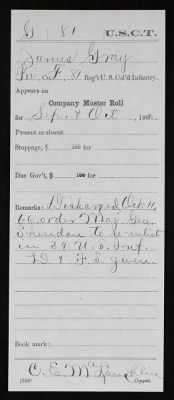 G | 81 | U.S.C.T.
James Gray
Pvt, Co. F, 81 Reg't U.S. Col'd Infantry.
Appears on
Company Muster Roll
for Sep. & Oct, 1866.
Present or absent
Stoppage, $ 100 for
Due Gov't, $ 100 for
Remarks: Discharged Oct 11,
66 order Maj. Gen.
Sheridan to re-enlist
in 39 U.S. Inf.
D. & F. S. given.
Book mark:
C. E. McLaughlin
(358) Copyist.